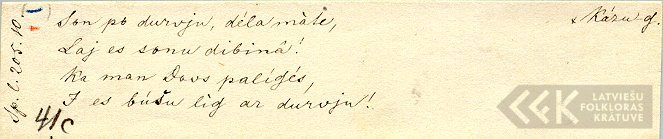 Son po durvju, dēla māte,
Kāzu g.
Laj es sonu dibinā!
Ka man Dovs palīgēs,
I es būšu līg ar durvju!
Sp. l. 205. 10.
41c
LATVIEŠU
FOLKLORAS
KRĀTUVE